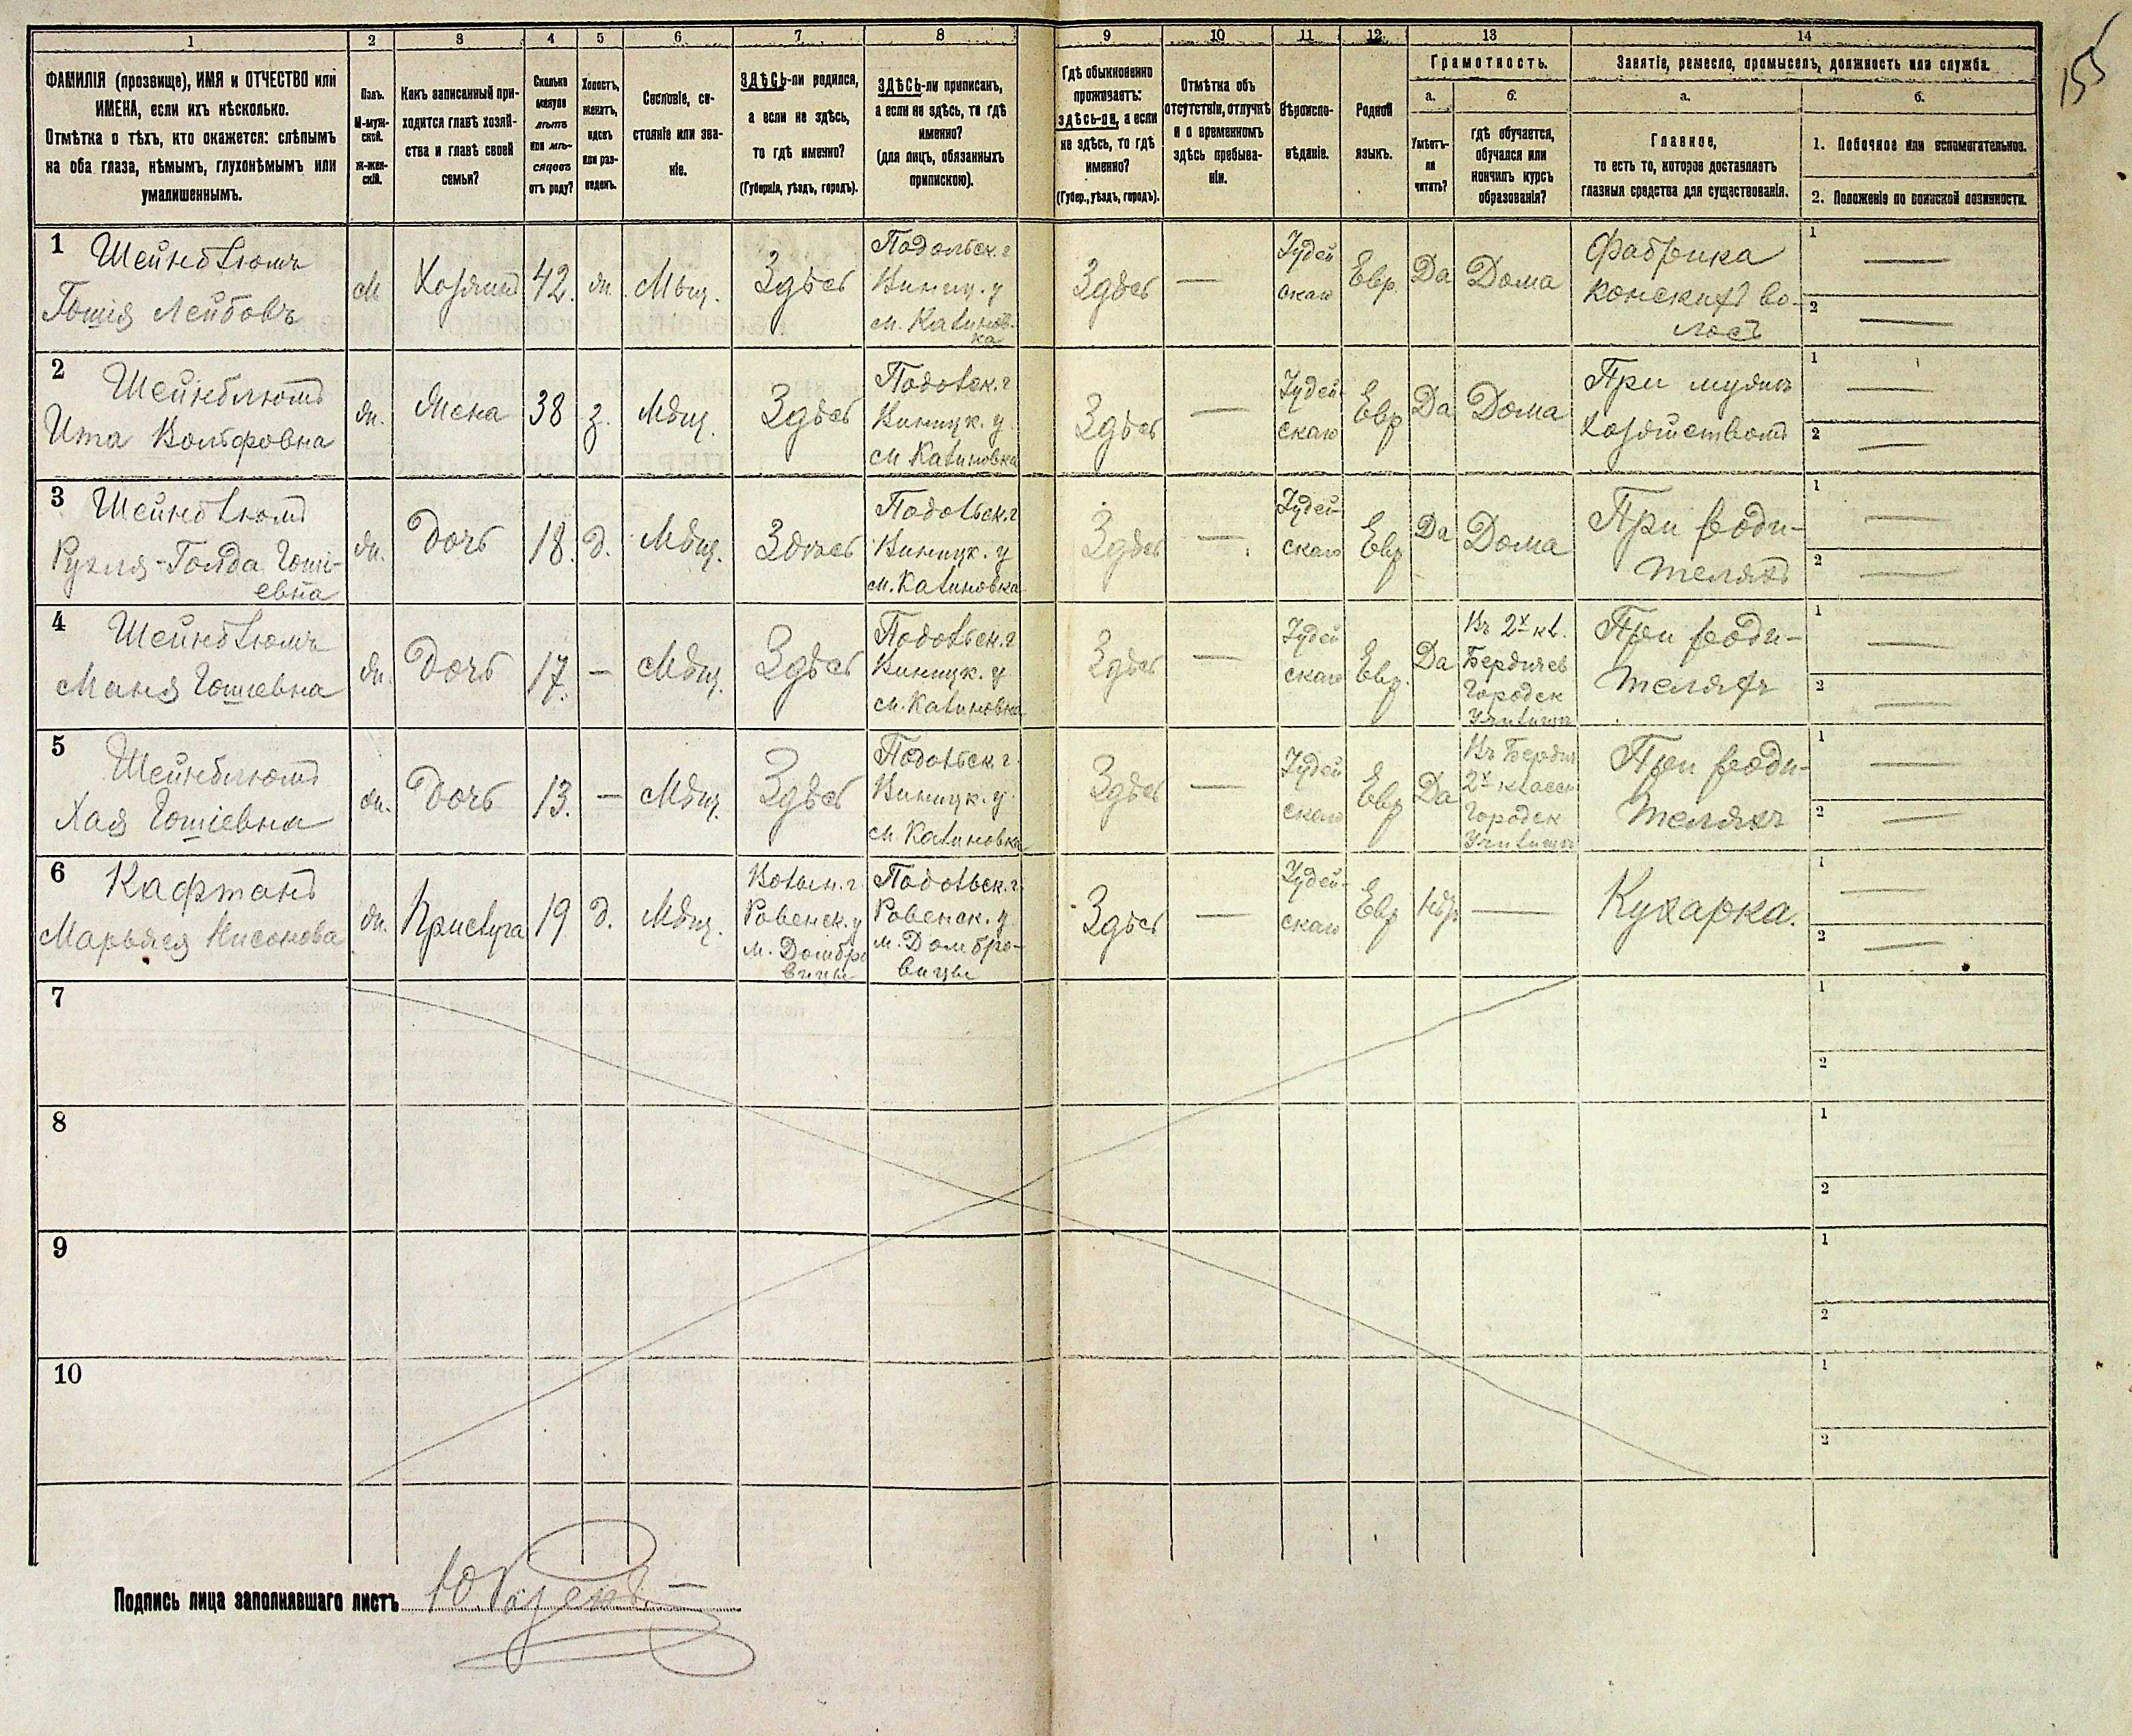 155
1 2 3 4 5 6 7 8 9 10 11 12 13 14
ФАМИЛІЯ (прозвище), ИМЯ и ОТЧЕСТВО или
ИМЕНА, если ихъ нѣсколько.
Отмѣтка о тѣхъ, кто окажется: слѣпымъ
на оба глаза, нѣмымъ, глухонѣмымъ или
умалишеннымъ.
Полъ.
М-муж-
ской.
Ж-жен-
скій.
Какъ записанный при-
ходится главѣ хозяй-
ства и главѣ своей
семьи?
Сколько
минуло
лѣтъ
или мѣ-
сяцевъ
отъ роду?
Холостъ,
женатъ,
вдовъ
или раз-
веденъ.
Сословіе, со-
стояніе или зва-
ніе.
ЗДѢСЬ-ли родился,
а если не здѣсь,
то гдѣ именно?
(Губернія, уѣздъ, городъ).
ЗДѢСЬ-ли приписанъ,
а если не здѣсь, то гдѣ
именно?
(для лицъ, обязанныхъ
припискою).
Гдѣ обыкновенно
проживаетъ:
здѣсь-ли, а если
не здѣсь, то гдѣ
именно?
(Губер., уѣздъ, городъ).
Отмѣтка объ
отсутствіи, отлучкѣ
и о временномъ
здѣсь пребыва-
ніи.
Вѣроиспо-
вѣданіе.
Родной
языкъ.
Грамотность.
а.
Умѣетъ-
ли
читать?
б.
гдѣ обучается,
обучался или
кончилъ курсъ
образованія?
Занятіе, ремесло, промыселъ, должность или служба.
а.
Главное,
то есть то, которое доставляетъ
главныя средства для существованія.
б.
1. Побочное или вспомогательное.
2. Положеніе по воинской повинности.
1
Шейнблюмъ
Гошія Лейбовъ
М
Хозяинъ
42.
ж.
Мѣщ.
Здѣсь
Подольск. г
Винниц. у
м. Калинов-
ка
Здѣсь
—
Іудей
ская
Евр.
Да
Дома
Фабрика
конскихъ во-
лосъ
1 —
2 —
2
Шейнблюмъ
Ита Вольфовна
ж.
Жена
38
з.
Мѣщ.
Здѣсь
Подольск. г
Винницк. у
м Калиновка
Здѣсь
—
Іудей-
ская
Евр
Да
Дома
При мужѣ
хозяйствомъ
1 —
2 —
3
Шейнблюмъ
Рухля-Голда Гоші-
евна
ж.
Дочь
18.
д.
Мѣщ.
Здѣсь
Подольск. г
Винницк. у
м. Калиновка
Здѣсь
—
Іудей-
ская
Евр
Да
Дома
При роди-
теляхъ
1 —
2 —
4
Шейнблюмъ
Маня Гошіевна
ж.
Дочь
17.
—
Мѣщ.
Здѣсь
Подольск. г
Винницк. у
м. Калиновка
Здѣсь
—
Іудей
ская
Евр.
Да
Въ 2х кл.
Бердичев
Городск
Училищѣ
При роди-
теляхъ
1 —
2 —
5
Шейнблюмъ
Хая Гошіевна
ж.
Дочь
13.
—
Мѣщ.
Здѣсь
Подольск г.
Винницк. у.
м. Калиновка
Здѣсь
—
Іудей
ская
Евр
Да
Въ Бердич
2х классн
Городск
Училищѣ
При роди-
теляхъ
1 —
2 —
6
Кафтанъ
Марьяся Нисонова
ж.
Прислуга
19
д.
Мѣщ.
Волын. г.
Ровенск. у
м. Домбро
вицы
Подольск. г.
Ровенск. у
м. Домбро-
вицы
Здѣсь
—
Іудей-
ская
Евр
Нѣт
—
Кухарка.
1 —
2 —
7
1
2
8
1
2
9
1
2
10
1
2
Подпись лица заполнявшаго листъ